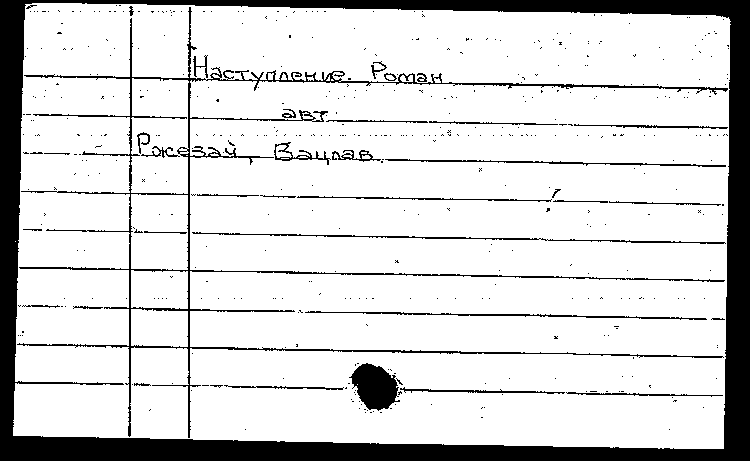 Наступление. Роман.
авт.
Ржезай, Вацлав.